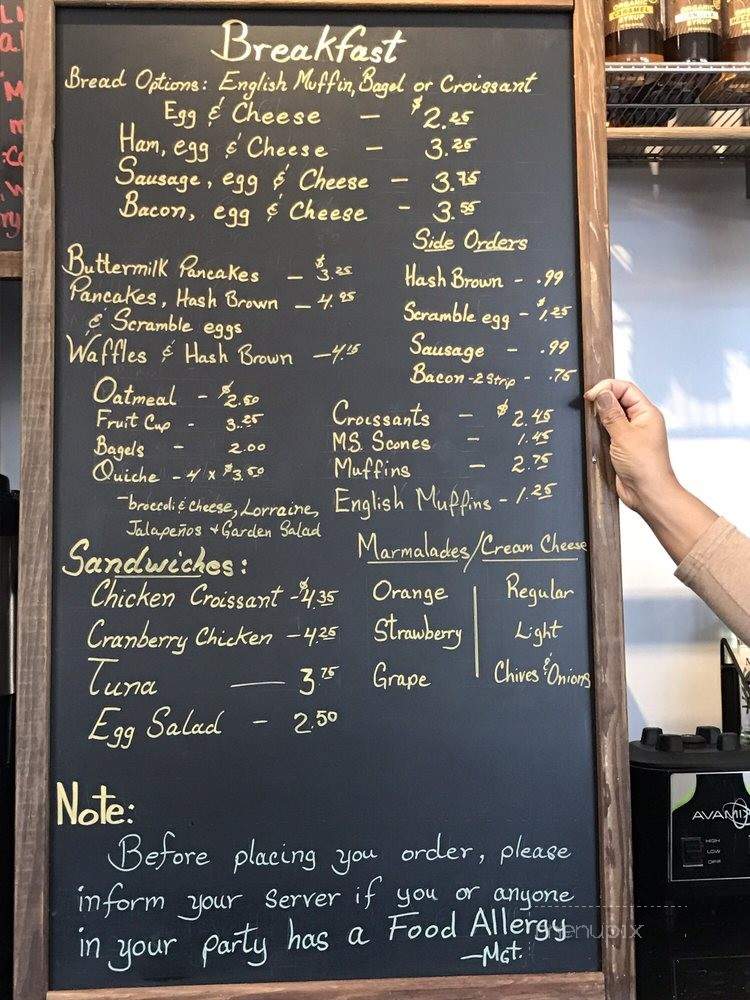 Breakfast
Bread Options: English Muffin, Bagel or Croissant
Egg & Cheese — $2.25
Ham, egg & Cheese — 3.25
Sausage, egg & Cheese — 3.75
Bacon, egg & Cheese — 3.55
Buttermilk Pancakes — $3.25
Pancakes, Hash Brown — 4.95
& Scramble eggs
Waffles & Hash Brown — 4.15
Side Orders
Hash Brown - .99
Scramble egg - $1.25
Sausage - .99
Bacon - 2 Strip - .75
Oatmeal - $2.50
Fruit Cup - 3.25
Bagels - 2.00
Quiche - 4 x $3.50
broccoli & Cheese, Lorraine,
Jalapeños + Garden Salad
Croissants — $2.45
MS. Scones — 1.45
Muffins — 2.75
English Muffins - 1.25
Sandwiches:
Chicken Croissant - $4.35
Cranberry Chicken — 4.25
Tuna — 3.75
Egg Salad — 2.50
Marmalades/Cream Cheese
Orange Regular
Strawberry Light
Grape Chives & Onions
Note:
Before placing you order, please
inform your server if you or anyone
in your party has a Food Allergy
—Mgt.
menupix
AVAMIX
HIGH
LOW
OFF
ORGANIC
CARAMEL
SYRUP
SYRUP
SYRUP